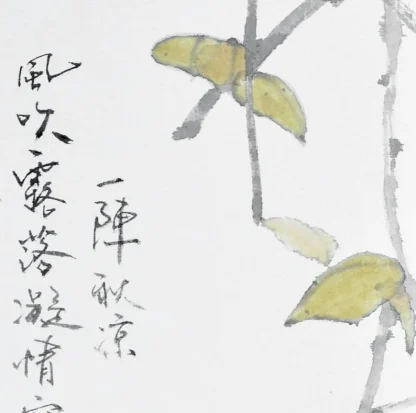 風吹露落凝情
一陣秋涼